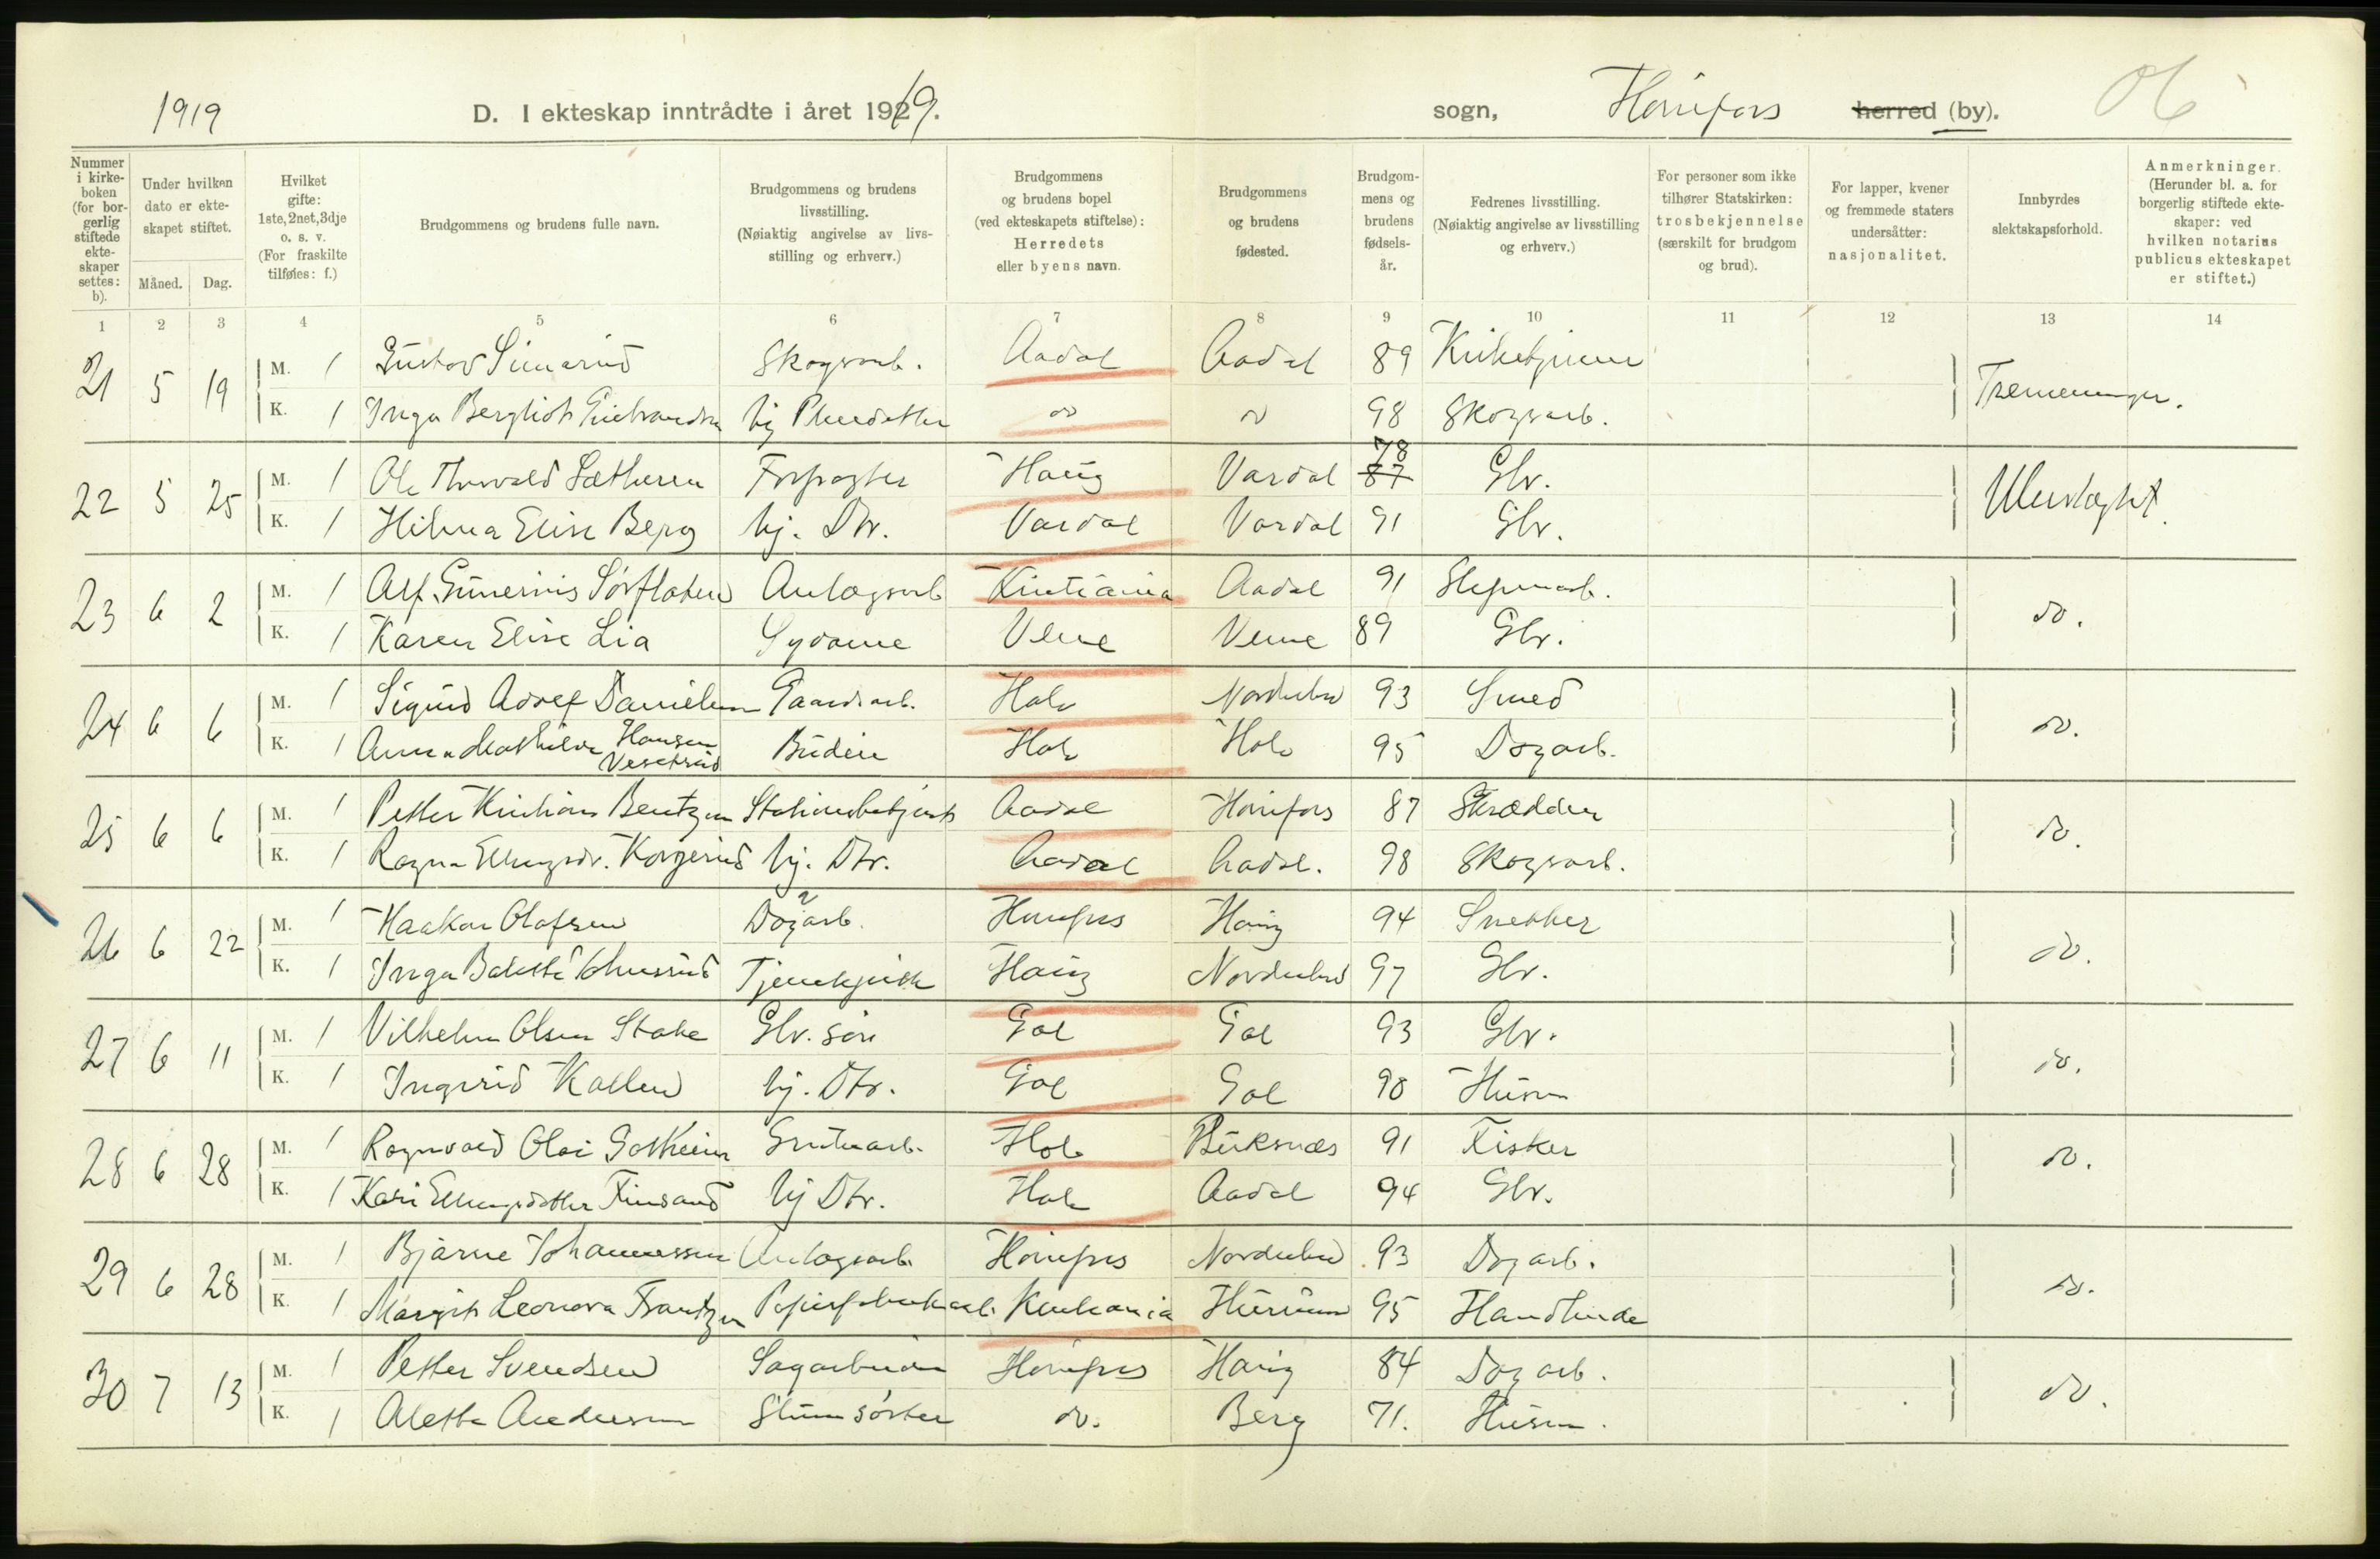 1919 D. I ekteskap inntrådte i året 19219. sogn, Hønefoss herred (by).
Nummer i kirkeboken (for borgerlig stiftede ekteskaper settes: b).
Under hvilken dato er ekteskapet stiftet.
Måned. Dag.
Hvilket gifte: 1ste, 2net, 3dje o. s. v. (For fraskilte tilføies: f.)
Brudgommens og brudens fulle navn.
Brudgommens og brudens livsstilling. (Nøiaktig angivelse av livsstilling og erhverv.)
Brudgommens og brudens bopel (ved ekteskapets stiftelse): Herredets eller byens navn.
Brudgommens og brudens fødested.
Brudgommens og brudens fødselsår.
Fedrenes livsstilling. (Nøiaktig angivelse av livsstilling og erhverv.)
For personer som ikke tilhører Statskirken: trosbekjennelse (særskilt for brudgom og brud).
For lapper, kvener og fremmede staters undersåtter: nasjonalitet.
Innbyrdes slektskapsforhold.
Anmerkninger. (Herunder bl. a. for borgerlig stiftede ekteskaper: ved hvilken notarius publicus ekteskapet er stiftet.)
1 2 3 4 5 6 7 8 9 10 11 12 13 14
21 5 19 M. 1 Gustav Skogsarb. Aadal Aadal 89 Tremenninger.
K. 1 Inga Bergliot hj do do 98 Skogsarb.
22 5 25 M. 1 Ole Thorvald Sætheren Forpagter Haug Vardal 87 78 Gbr. Ubeslægtet.
K. 1 Hilma Elise Berg hj. Dtr. Vardal Vardal 91 Gbr.
23 6 2 M. 1 Alf Sørflaten Anlægsarb Kristiania Aadal 91 do.
K. 1 Karen Elise Lia Sydame Veme Veme 89 Gbr.
24 6 6 M. 1 Sigurd Adolf Danielsen Gaardsarb. Hole Norderhov 93 Smed do.
K. 1 Anna Mathilde Hansen Vesetrud Budeie Hole Hole 95 Dagarb.
25 6 6 M. 1 Petter Kristian Bentzen Stationsbetjent Aadal Hønefoss 87 Skrædder do.
K. 1 Ragna Ellingsdr. Korgerud hj. Dtr. Aadal Aadal. 98 Skogsarb.
26 6 22 M. 1 Haakon Olafsen Dagarb. Hønefos Haug 94 Snekker do.
K. 1 Inga Tjenestpike Haug Norderhov 97 Gbr.
27 6 11 M. 1 Vilhelm Olsen Stake Gbr. søn Gol Gol 93 Gbr. do.
K. 1 Ingerid Kallen hj. Dtr. Gol Gol 90 Husm
28 6 28 M. 1 Ragnvald Olai Solheim Grubearb. Hole Buksnæs 91 Fisker do.
K. 1 Kari Ellingsdatter Finsand hj Dtr. Hole Aadal 94 Gbr.
29 6 28 M. 1 Bjarne Johannessen Anlægsarb. Hønefos Norderhov 93 Dagarb. do.
K. 1 Margit Leonora Frantzen Papirfabrikarb. Kristiania Hurum 95 Handlende
30 7 13 M. 1 Petter Svendsen Sagarbeider Hønefos Haug 84 Dagarb. do.
K. 1 Alette Andersen do. Berg 71. Husm.